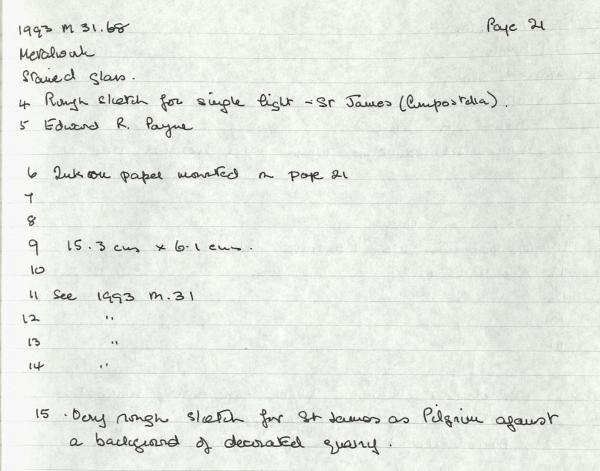 1993 M 31.68 Page 21
Metalwork
Stained glass.
4 Rough sketch for single light - St James (Compostella).
5 Edward R. Payne
6 Ink on paper mounted on page 21
7
8
9 15.3 cms x 6.1 cms.
10
11 See 1993 M.31
12 "
13 "
14 "
15 . Very rough sketch for St James as Pilgrim against
a background of decorated quarry.